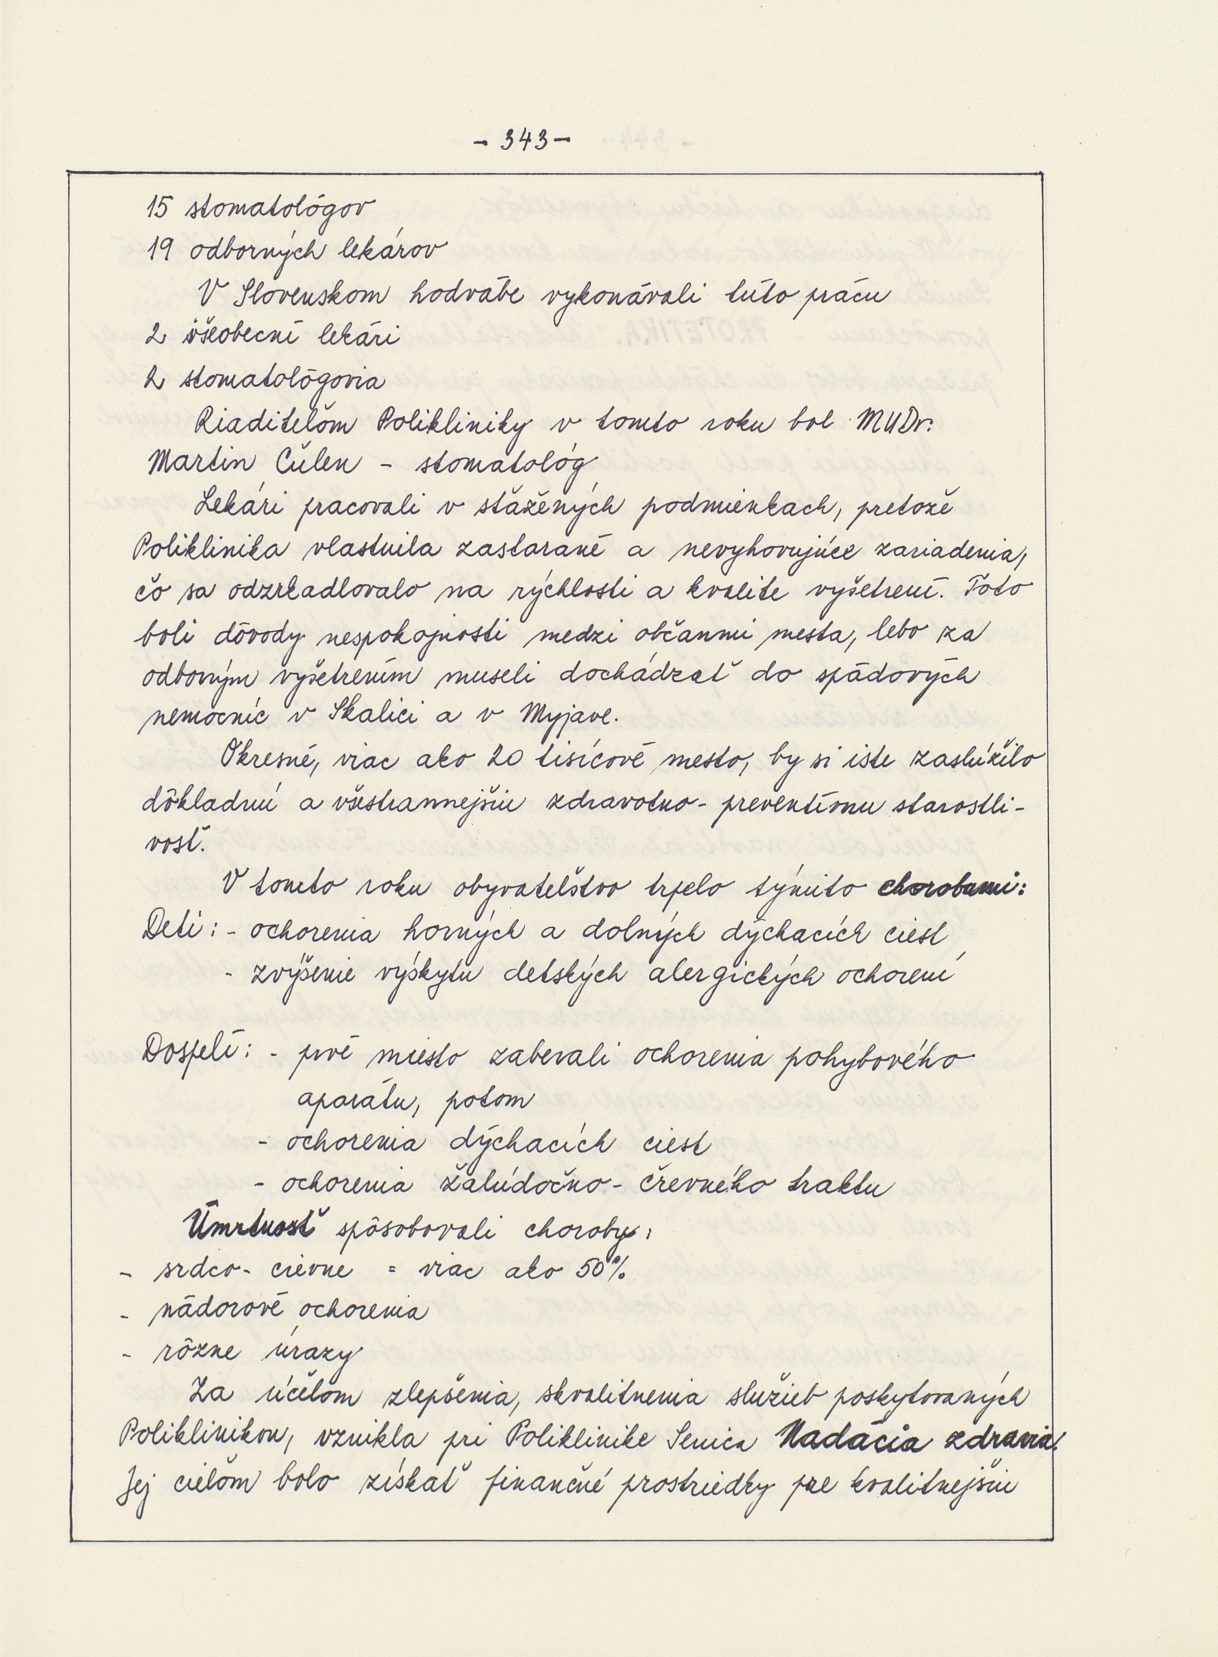 - 343 -
15 stomatológov
19 odborných lekárov
V Slovenskom hodvábe vykonávali túto prácu
2 všeobecní lekári
2 stomatológovia
Riaditeľom Polikliniky v tomto roku bol MUDr.
Martin Čulen - stomatológ
Lekári pracovali v sťažených podmienkach, pretože
Poliklinika vlastnila zastarané a nevyhovujúce zariadenia,
čo sa odzrkadlovalo na rýchlosti a kvalite vyšetrení. Toto
boli dôvody nespokojnosti medzi občanmi mesta, lebo za
odborným vyšetrením museli dochádzať do spádových
nemocníc v Skalici a v Myjave.
Okresné, viac ako 20 tisícové mesto, by si iste zaslúžilo
dôkladnú a všestrannejšiu zdravotno-preventívnu starostli-
vosť.
V tomto roku obyvateľstvo trpelo týmito chorobami:
Deti: - ochorenia horných a dolných dýchacích ciest
- zvýšenie výskytu detských alergických ochorení
Dospelí: - prvé miesto zaberali ochorenia pohybového
aparátu, potom
- ochorenia dýchacích ciest
- ochorenia žalúdočno-črevného traktu
Úmrtnosť spôsobovali choroby:
- srdco-cievne = viac ako 50%
- nádorové ochorenia
- rôzne úrazy
Za účelom zlepšenia, skvalitnenia služieb poskytovaných
Poliklinikou, vznikla pri Poliklinike Senica Nadácia zdravia.
Jej cieľom bolo získať finančné prostriedky pre kvalitnejšiu